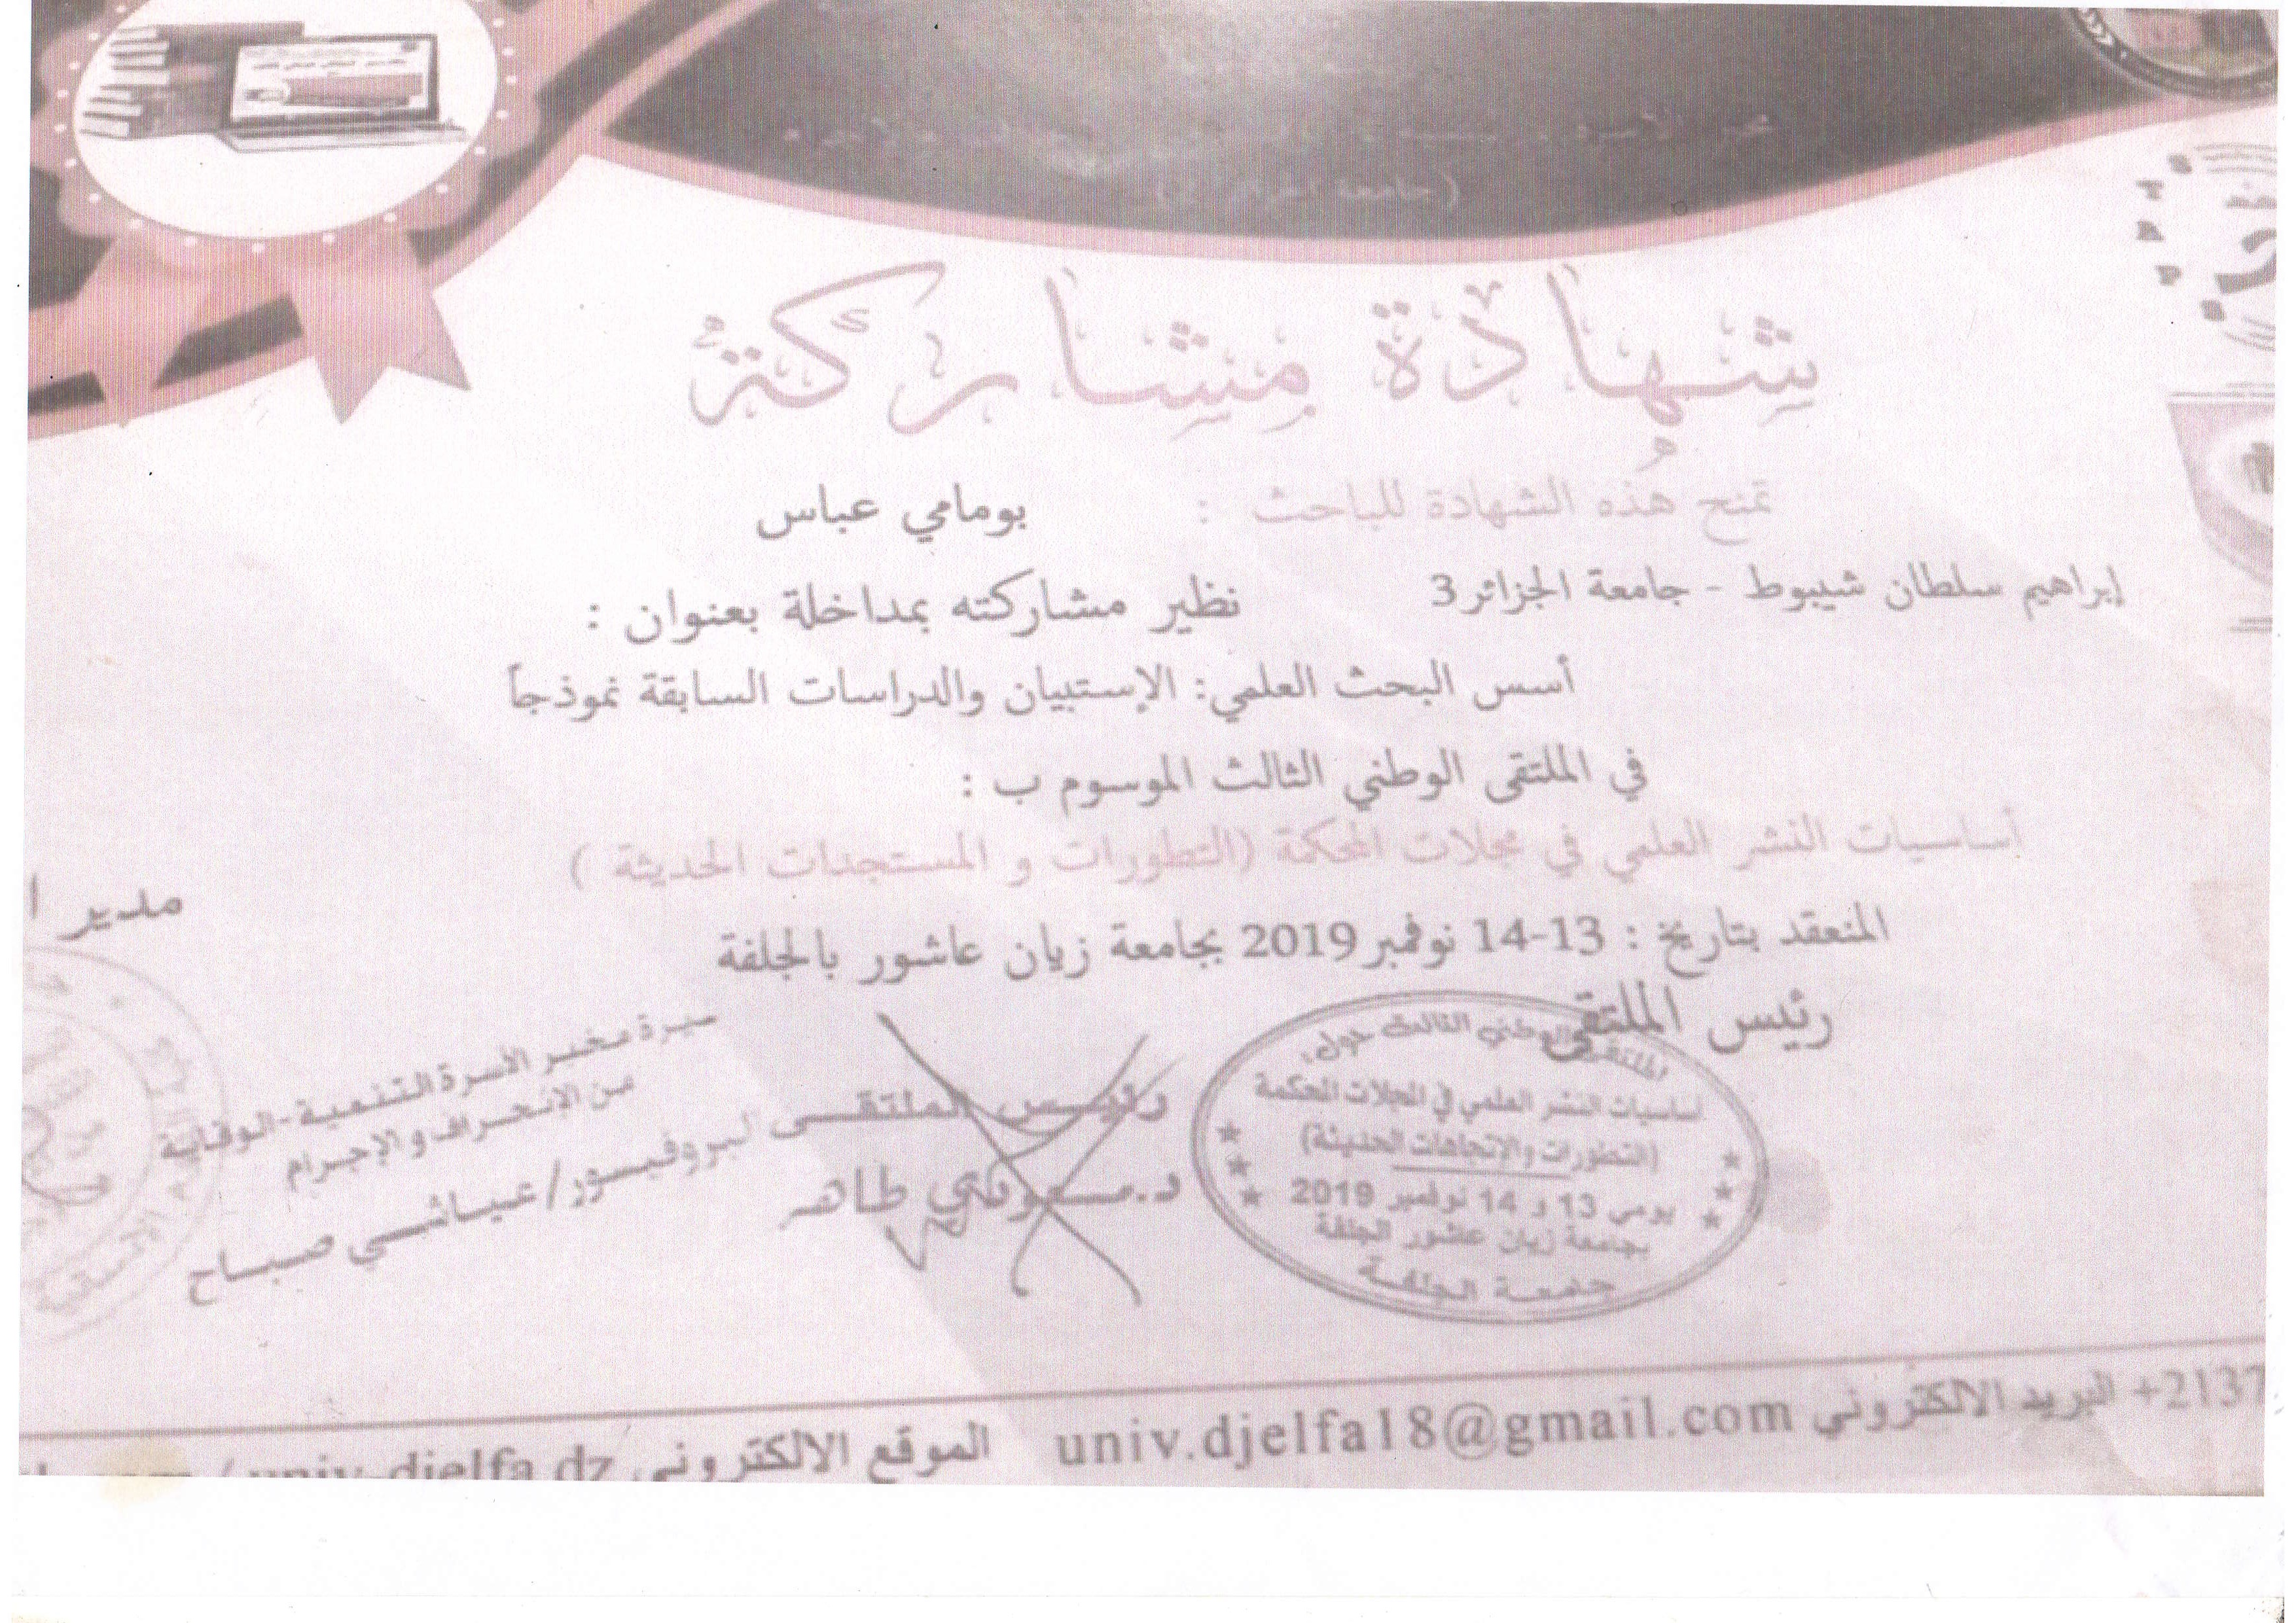 (جامعة الجزائر 2)
شهادة مشاركة
تمنح هذه الشهادة للباحث : بومامي عباس
إبراهيم سلطان شيبوط - جامعة الجزائر3 نظير مشاركته بمداخلة بعنوان :
أسس البحث العلمي: الإستبيان والدراسات السابقة نموذجاً
في الملتقى الوطني الثالث الموسوم ب :
أساسيات النشر العلمي في مجلات المحكمة (التطورات و المستجدات الحديثة )
المنعقد بتاريخ : 13-14 نوفمبر2019 بجامعة زيان عاشور بالجلفة
رئيس الملتقى
مدير ا
الملتقى الوطني الثالث حول:
اساسيات النشر العلمي في المجلات المحكمة
(التطورات والإتجاهات الحديثة)
يومي 13 و 14 نوفمبر 2019
بجامعة زيان عاشور الجلفة
جامعة الجلفة
رئيس الملتقى
طاهر
مخبر الأسرة التنمية-الوقاية
من الانحراف و الإجرام
البروفيسور/عياشي صباح
+2137 البريد الالكتروني univ.djelfa18@gmail.com الموقع الالكتروني univ-djelfa.dz